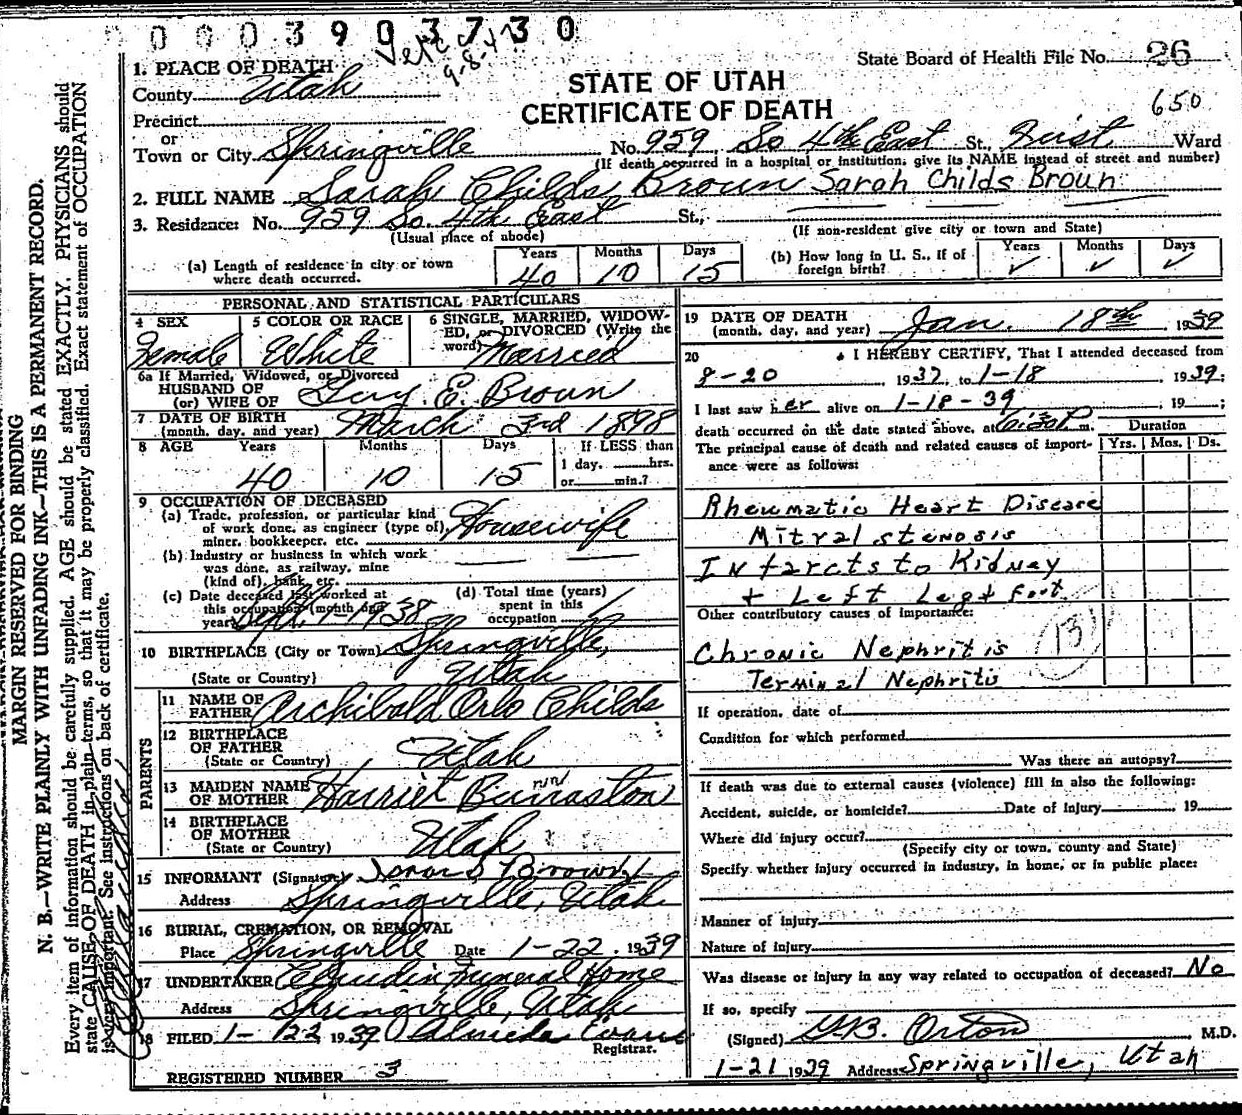 0003903730
9-8-47
State Board of Health File No. 26
STATE OF UTAH
CERTIFICATE OF DEATH
650
1. PLACE OF DEATH
County Utah
Precinct
or
Town or City Springville No. 959 So 4th East St., Ward
(If death occurred in a hospital or institution, give its NAME instead of street and number)
2. FULL NAME Sarah Childs Brown Sarah Childs Brown
3. Residence: No. 959 So. 4th East St.,
(Usual place of abode) (If non-resident give city or town and State)
(a) Length of residence in city or town where death occurred. Years 40 Months 10 Days 15
(b) How long in U. S., if of foreign birth? Years ✓ Months ✓ Days ✓
PERSONAL AND STATISTICAL PARTICULARS
4 SEX Female
5 COLOR OR RACE White
6 SINGLE, MARRIED, WIDOWED, or DIVORCED (Write the word) Married
6a If Married, Widowed, or Divorced
HUSBAND OF
(or) WIFE OF Guy E. Brown
7 DATE OF BIRTH
(month, day, and year) March 3rd 1898
8 AGE Years 40 Months 10 Days 15
If LESS than
1 day, hrs.
or min.?
9 OCCUPATION OF DECEASED
(a) Trade, profession, or particular kind of work done, as engineer (type of), miner, bookkeeper, etc. Housewife
(b) Industry or business in which work was done, as railway, mine (kind of), bank, etc.
(c) Date deceased last worked at this occupation (month and year) Sept. 1-1938
(d) Total time (years) spent in this occupation
10 BIRTHPLACE (City or Town) Springville,
(State or Country) Utah
PARENTS
11 NAME OF FATHER Archibald Orlo Childs
12 BIRTHPLACE OF FATHER
(State or Country) Utah
13 MAIDEN NAME OF MOTHER Harriet
14 BIRTHPLACE OF MOTHER
(State or Country) Utah
15 INFORMANT (Signature) Brown
Address Springville, Utah
16 BURIAL, CREMATION, OR REMOVAL
Place Springville Date 1-22, 1939
17 UNDERTAKER Claudin Funeral Home
Address Springville, Utah
18 FILED 1-22 1939 Almeda Evans
Registrar.
REGISTERED NUMBER 3
19 DATE OF DEATH
(month, day, and year) Jan. 18th, 1939
20 I HEREBY CERTIFY, That I attended deceased from
8-20, 1937, to 1-18, 1939;
I last saw her alive on 1-18-39, 19 ;
death occurred on the date stated above, at m.
The principal cause of death and related causes of importance were as follows:
Duration
Yrs. Mos. Ds.
Rheumatic Heart Disease
Mitral stenosis
Infarcts to Kidney
+ Left Leg + foot
Other contributory causes of importance:
Chronic Nephritis
Terminal Nephritis
131
If operation, date of
Condition for which performed
Was there an autopsy?
If death was due to external causes (violence) fill in also the following:
Accident, suicide, or homicide? Date of Injury 19
Where did injury occur?
(Specify city or town, county and State)
Specify whether injury occurred in industry, in home, or in public place:
Manner of injury
Nature of injury
Was disease or injury in any way related to occupation of deceased? No
If so, specify
(Signed) G.B. Orton M.D.
1-21 1939 Address Springville, Utah
MARGIN RESERVED FOR BINDING
N. B.—WRITE PLAINLY WITH UNFADING INK—THIS IS A PERMANENT RECORD.
Every item of information should be carefully supplied. AGE should be stated EXACTLY. PHYSICIANS should
state CAUSE OF DEATH in plain terms, so that it may be properly classified. Exact statement of OCCUPATION
is very important. See instructions on back of certificate.